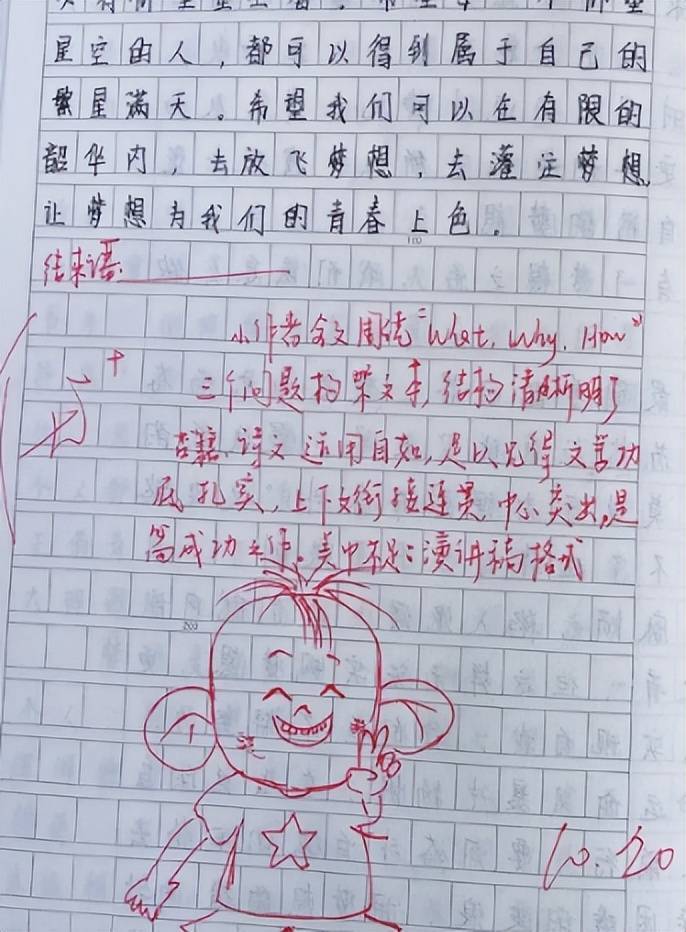 星空的人，都可以得到属于自己的
繁星满天。希望我们可以在有限的
韶华内，去放飞梦想，去灌注梦想，
让梦想为我们的青春上色。
结束语:
小作者全文围绕"What, Why, How"
三个问题构架文本，结构清晰明了
古籍、诗文运用自如，足以见得文言功
底扎实，上下文衔接连贯，中心突出，是
篇成功之作。美中不足:演讲稿格式
10.20